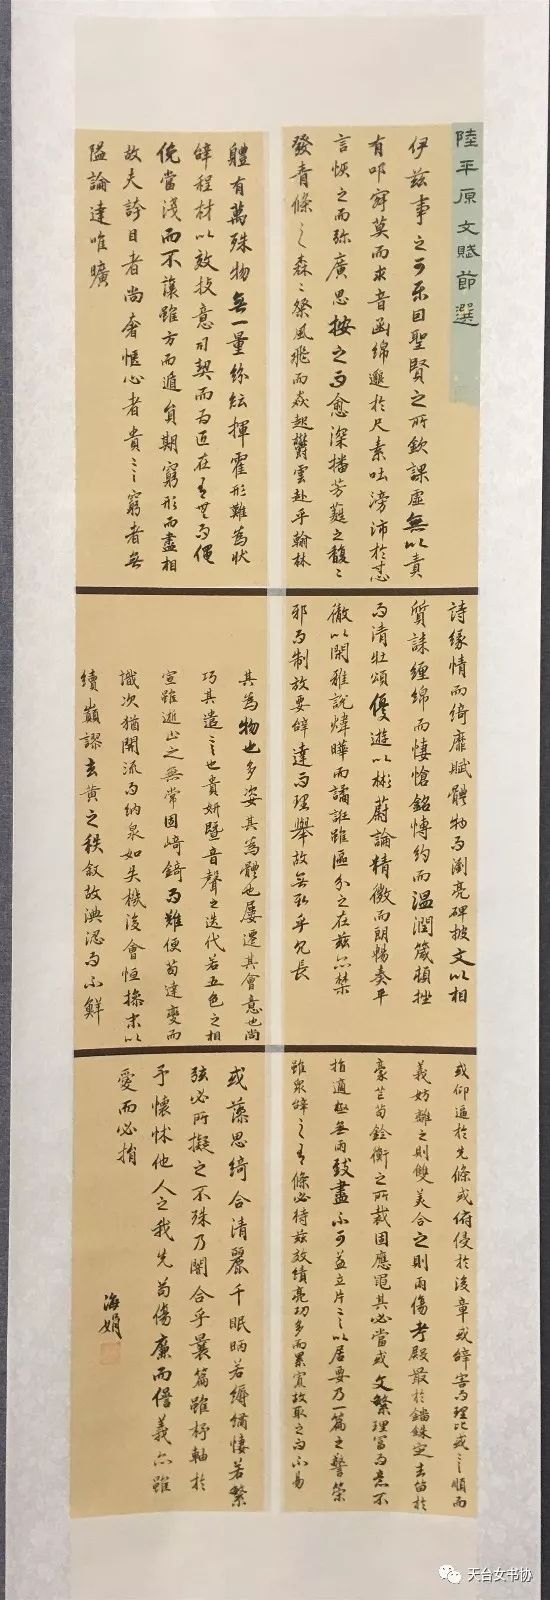 陸平原文賦節選
伊茲事之可樂固聖賢之所欽課虛無以責
有叩寂寞而求音函綿邈於尺素吐滂沛於寸心
言恢之而彌廣思按之而愈深播芳蕤之馥〻
發青條之森〻粲風飛而猋起鬱雲赴乎翰林
體有萬殊物無一量紛紜揮霍形難為狀
辭程材以效技意司契而為匠在有無而僶
俛當淺而不讓雖方而遁員期窮形而盡相
故夫誇目者尚奢愜心者貴言窮者無
隘論達唯曠
詩緣情而綺靡賦體物而瀏亮碑披文以相
質誄纏綿而悽愴銘博約而溫潤箴頓挫
而清壯頌優遊以彬蔚論精微而朗暢奏平
徹以閑雅說煒曄而譎誑雖區分之在茲亦禁
邪而制放要辭達而理舉故無取乎冗長
其為物也多姿其為體也屢遷其會意也尚
巧其遣言也貴妍暨音聲之迭代若五色之相
宣雖逝止之無常固崎錡而難便苟達變而
識次猶開流而納泉如失機後會恒操末以
續巔謬玄黃之秩敘故淟涊而不鮮
或仰逼於先條或俯侵於後章或辭害而理比或言順而
義妨離之則雙美合之則兩傷考殿最於錙銖定去留於
豪芒苟銓衡之所裁固應繩其必當或文繁理富而意不
指適極無兩致盡不可益立片言以居要乃一篇之警策
雖眾辭之有條必待茲效績亮功多而累寡故取之而不易
或藻思綺合清麗千眠炳若縟繡悽若繁
弦必所擬之不殊乃闇合乎曩篇雖杼軸於
予懷怵他人之我先苟傷廉而愆義亦雖
愛而必捐
海娟
天台女书协